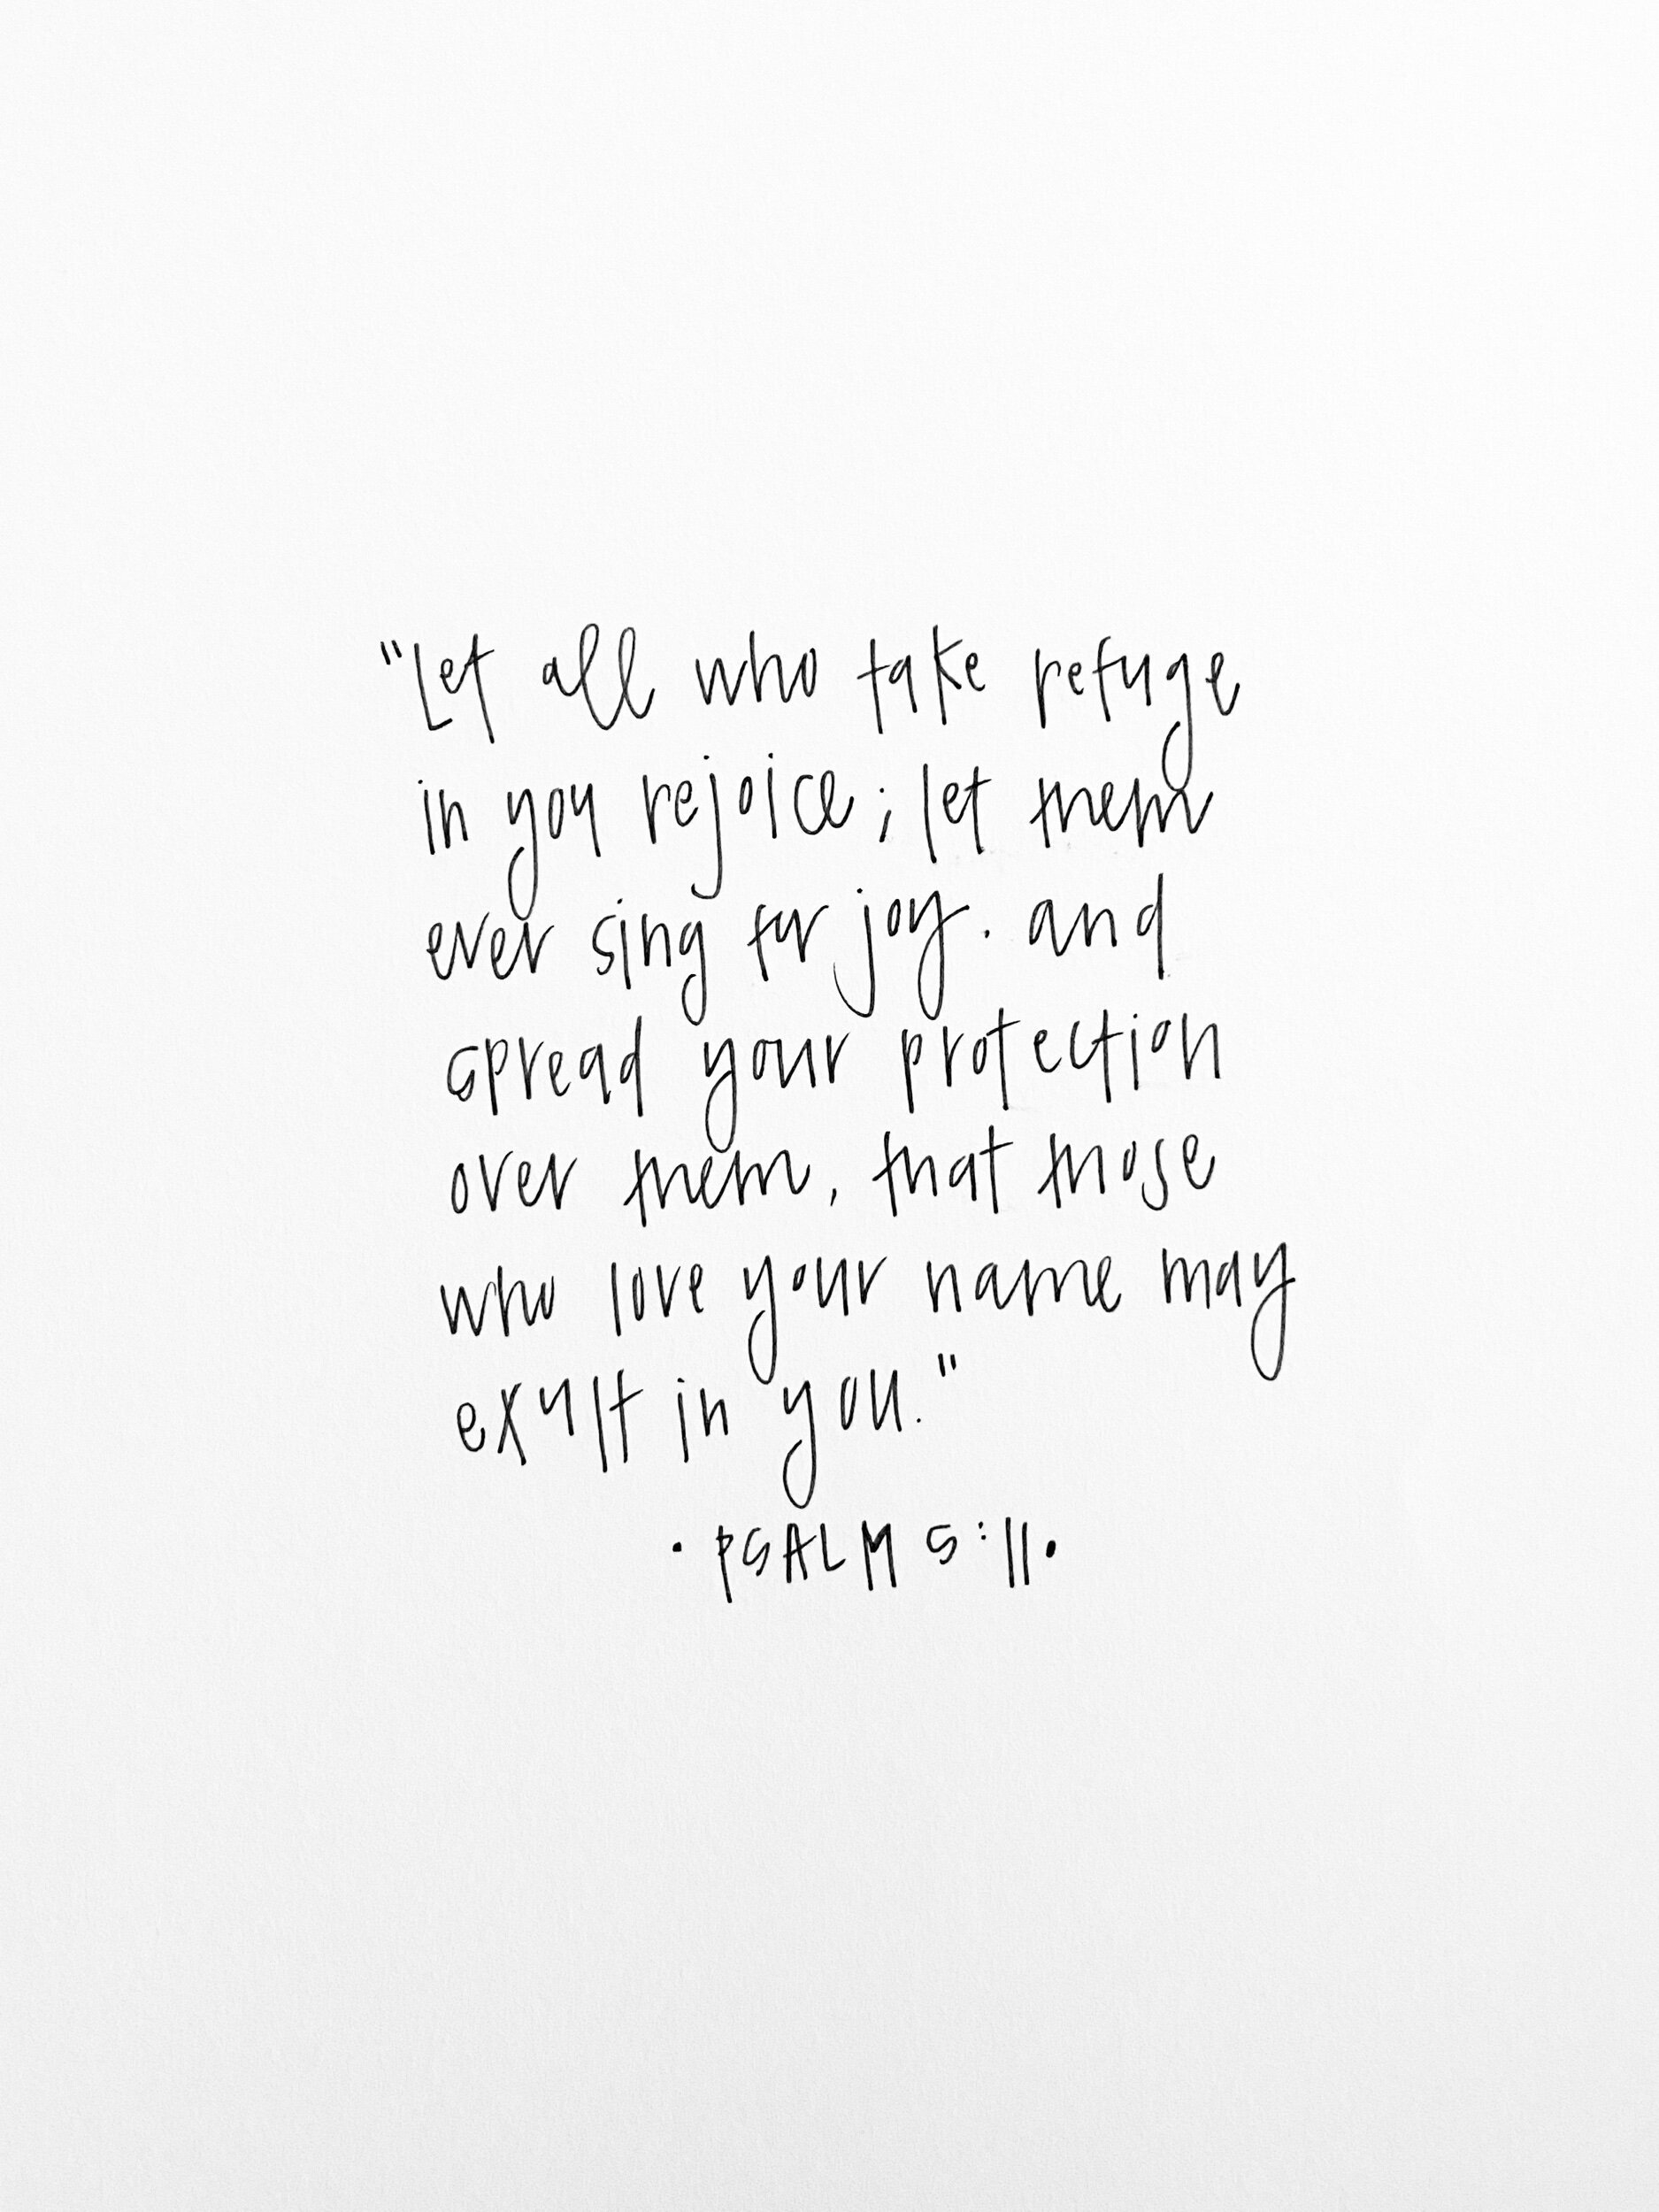 "Let all who take refuge
in you rejoice; let them
ever sing for joy. and
spread your protection
over them, that those
who love your name may
exult in you."
• PSALM 5:11 •